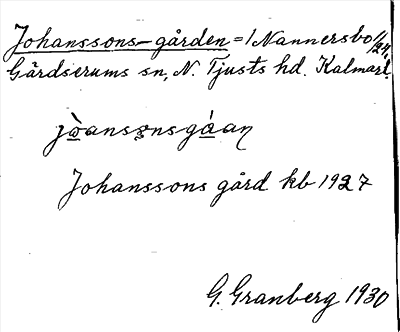 Johanssons-gården = 1 Nannersbo 1/24.
Gärdserums sn, N. Tjusts hd. Kalmar l.
jòansǝnsgáaṇ
Johanssons gård kb 1927
G. Granberg 1930